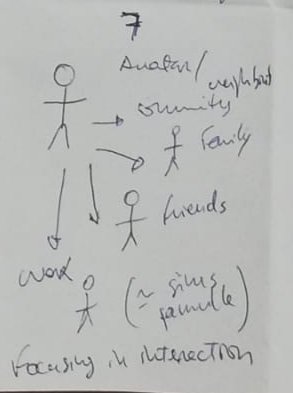 7
Avatar/
neighbout
omunity
Family
friends
work
(~ sims
Focusing in interaction